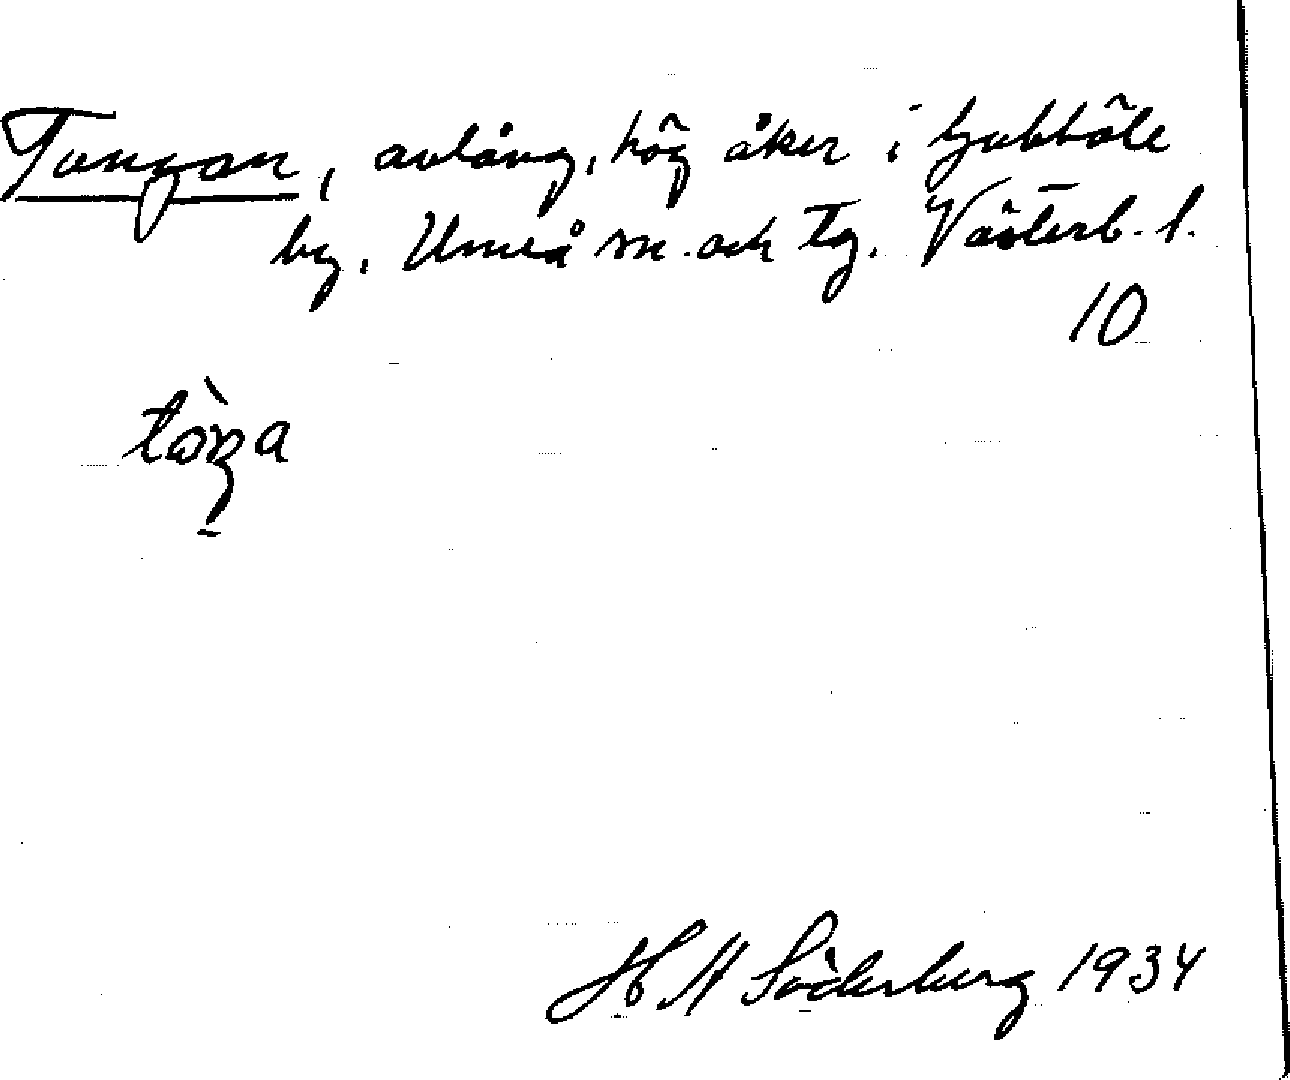 Tangan, avlång, hög åker i Gubböle
by, Umeå sn. och tg. Västerb. l.
10
tàŋa
H Söderberg 1934